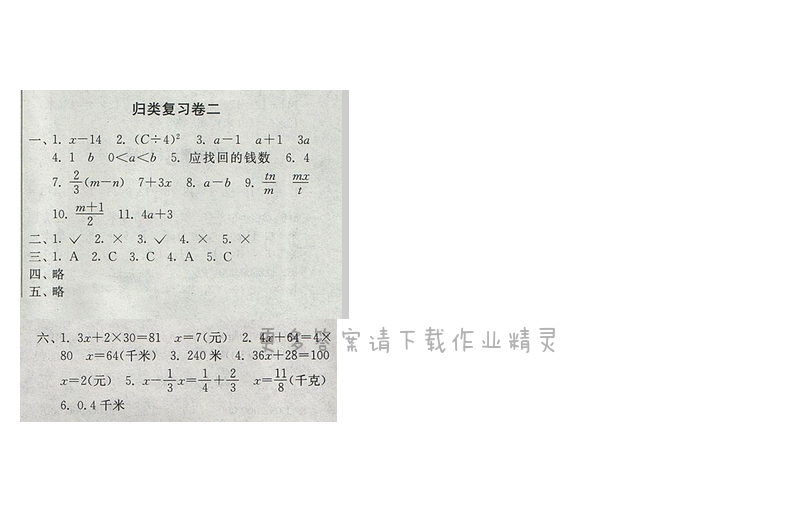 归类复习卷二
一、1. x－14 2. (C÷4)² 3. a－1 a＋1 3a
4. 1 b 0＜a＜b 5. 应找回的钱数 6. 4
7. 2/3(m－n) 7＋3x 8. a－b 9. tn/m mx/t
10. (m＋1)/2 11. 4a＋3
二、1. ✓ 2. × 3. ✓ 4. × 5. ×
三、1. A 2. C 3. C 4. A 5. C
四、略
五、略
六、1. 3x＋2×30＝81 x＝7(元) 2. 4x＋64＝4×
80 x＝64(千米) 3. 240 米 4. 36x＋28＝100
x＝2(元) 5. x－1/3x＝1/4＋2/3 x＝11/8(千克)
6. 0.4 千米
更多答案请下载作业精灵